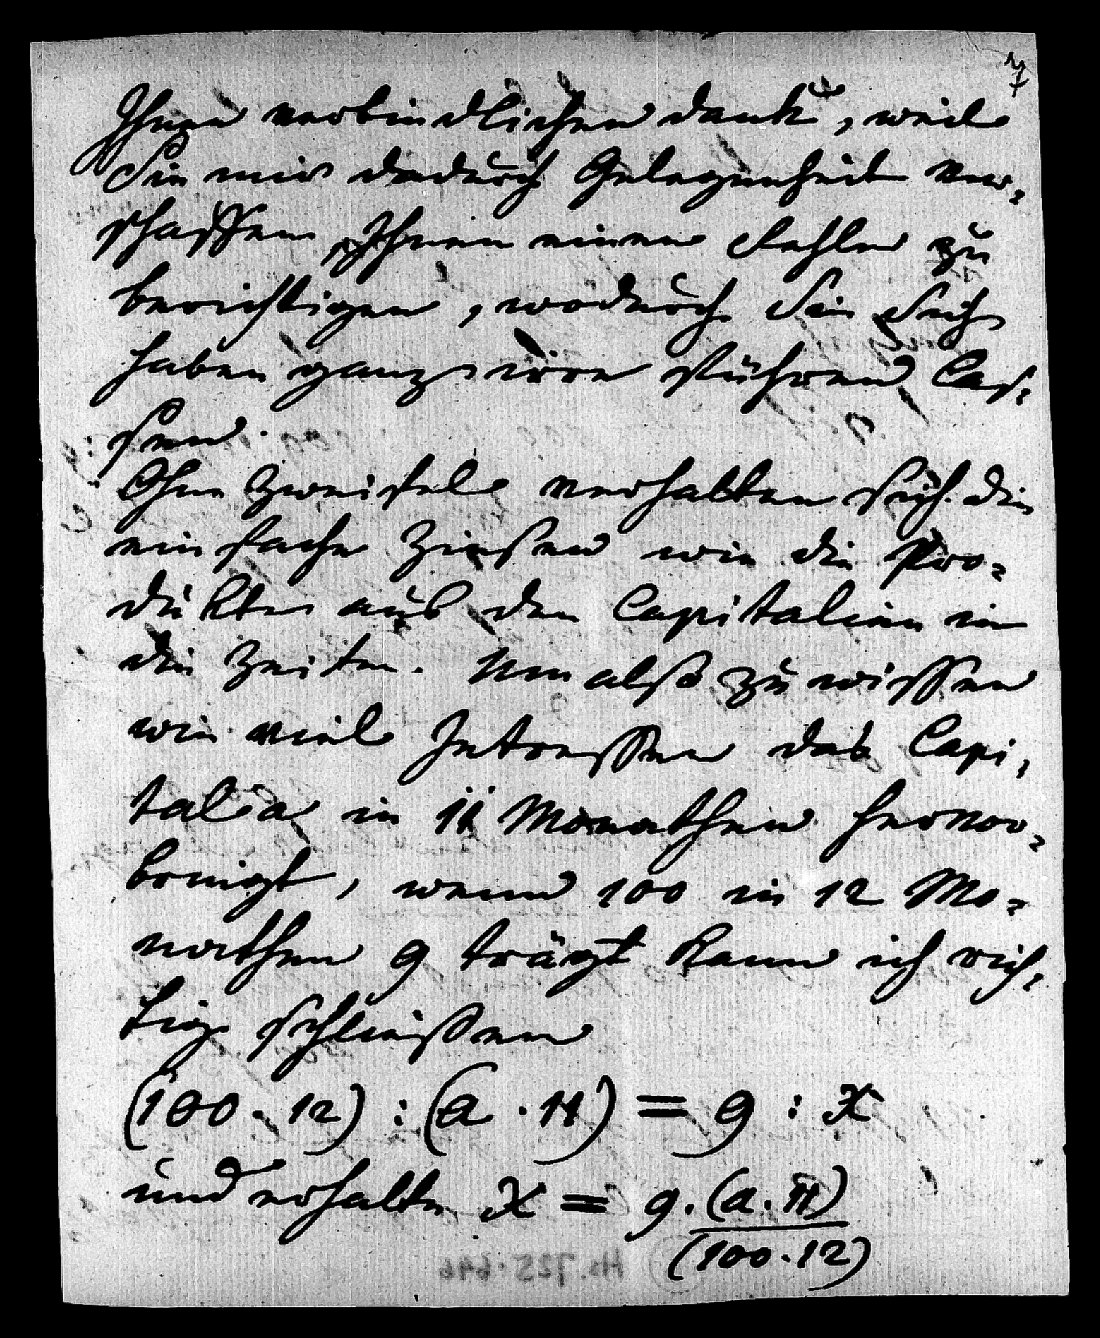 7
Ihnen verbindlichen dank, weil
Sie mir dadurch Gelegenheit ver-
schaffen, Ihnen einen Fehler zu
berichtigen, wodurch Sie Sich
haben ganz irre führen las-
sen.
Ohne Zweifel verhalten sich die
einfache Zinsen wie die Pro-
dukte aus den Capitalien in
die Zeiten. Um also zu wissen
wie viel Interessen das Capi-
tal a in 11 Monathen hervor-
bringt, wenn 100 in 12 Mo-
nathen 9 trägt kann ich rich-
tig schliessen
(100 . 12) : (a . 11) = 9 : x
und erhalte x = 9 . (a . 11)
(100 . 12)
Hs. 725.646